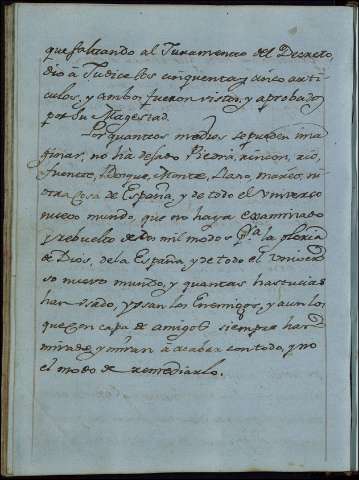 que faltando al Juramento del Decreto,
dió à Judice los cinquenta, y cinco arti-
culos, y ambos fueron vistos, y aprobados
por Su Magestad.
Por quantos medios se pueden ima
ginar, no ha dejado Piedra, rincon, rio,
fuente, Bosque, Monte, Llano, mares, ni
otra cosa de España, y de todo el Universo
nuevo mundo, que no haya examinado
y rebuelto de dos mil modos pa. la gloria
de Dios, de la España, y de todo el Univer
so nuevo mundo, y quantas hastucias
han usado, y usan los Enemigos, y aun los
que con capa de amigos siempre han
mirado, y miran à acabar con todo, y no
el modo de remediarlo.